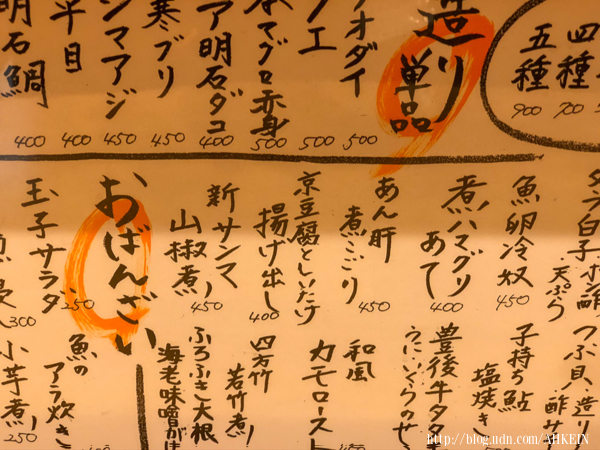 四種 700
五種 900
造り
単品
オダイ 500
ノエ 500
本マグロ赤身 500
ア明石ダコ 400
寒ブリ 450
シマアジ 450
平目 400
明石鯛 400
タラ白子ポン酢
天ぷら
魚卵冷奴 450
煮ハマグリ
あて 400
あん肝
煮こごり 450
京豆腐としいたけ
揚げ出し 400
新サンマ
山椒煮 450
おばんざい
玉子サラダ 250
300
つぶ貝造り
酢み
子持ち鮎
塩焼き
豊後牛タタキ
うにいくらのせ
和風
カモロースト
四方竹
若竹煮
ふろふき大根
海老味噌がけ
魚の
アラ炊き
小芋煮 250
http://blog.udn.com/AHKEIN